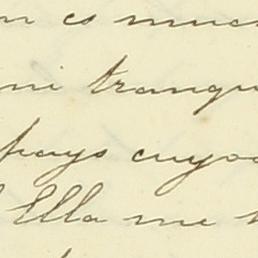 n es much
mi tranqu
pays cuyo
Ella me